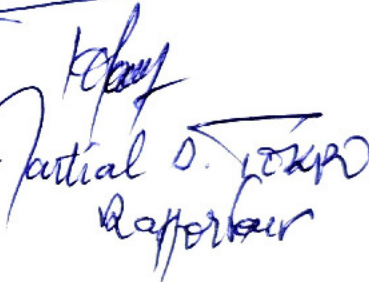 Martial D. TOKPO
Rapporteur